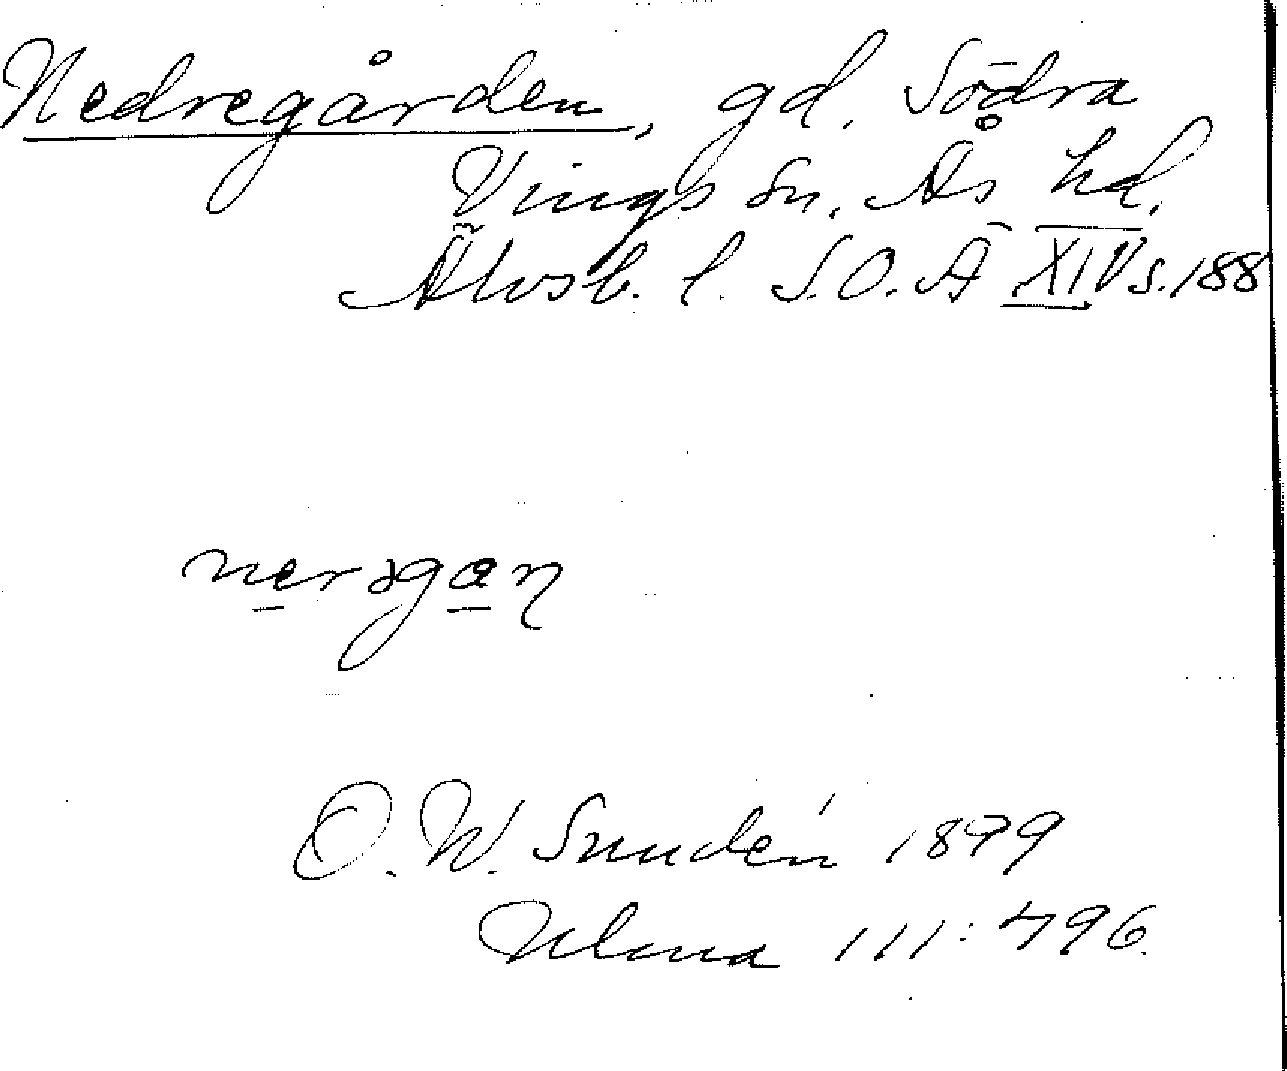 Nedregården, gd. Södra
Vings sn. Ås hd.
Älvsb. l. S.O.Ä XIV s. 188
nerəgan
D. W. Sundén 1899
Ulma 111:496.